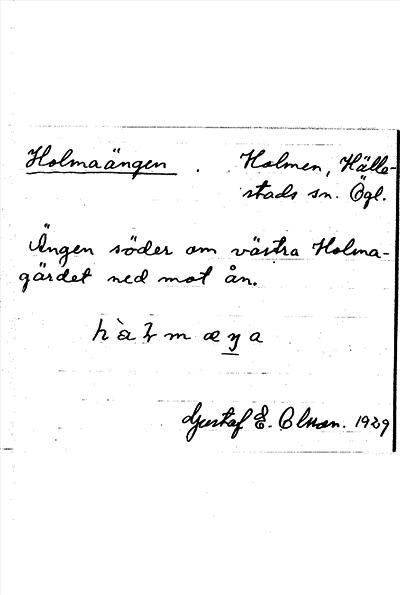 Holmaängen . Holmen, Hälle-
stads sn. Ögl.
Ängen söder om västra Holma-
gärdet ned mot ån.
Gustaf E. Olsson. 1929